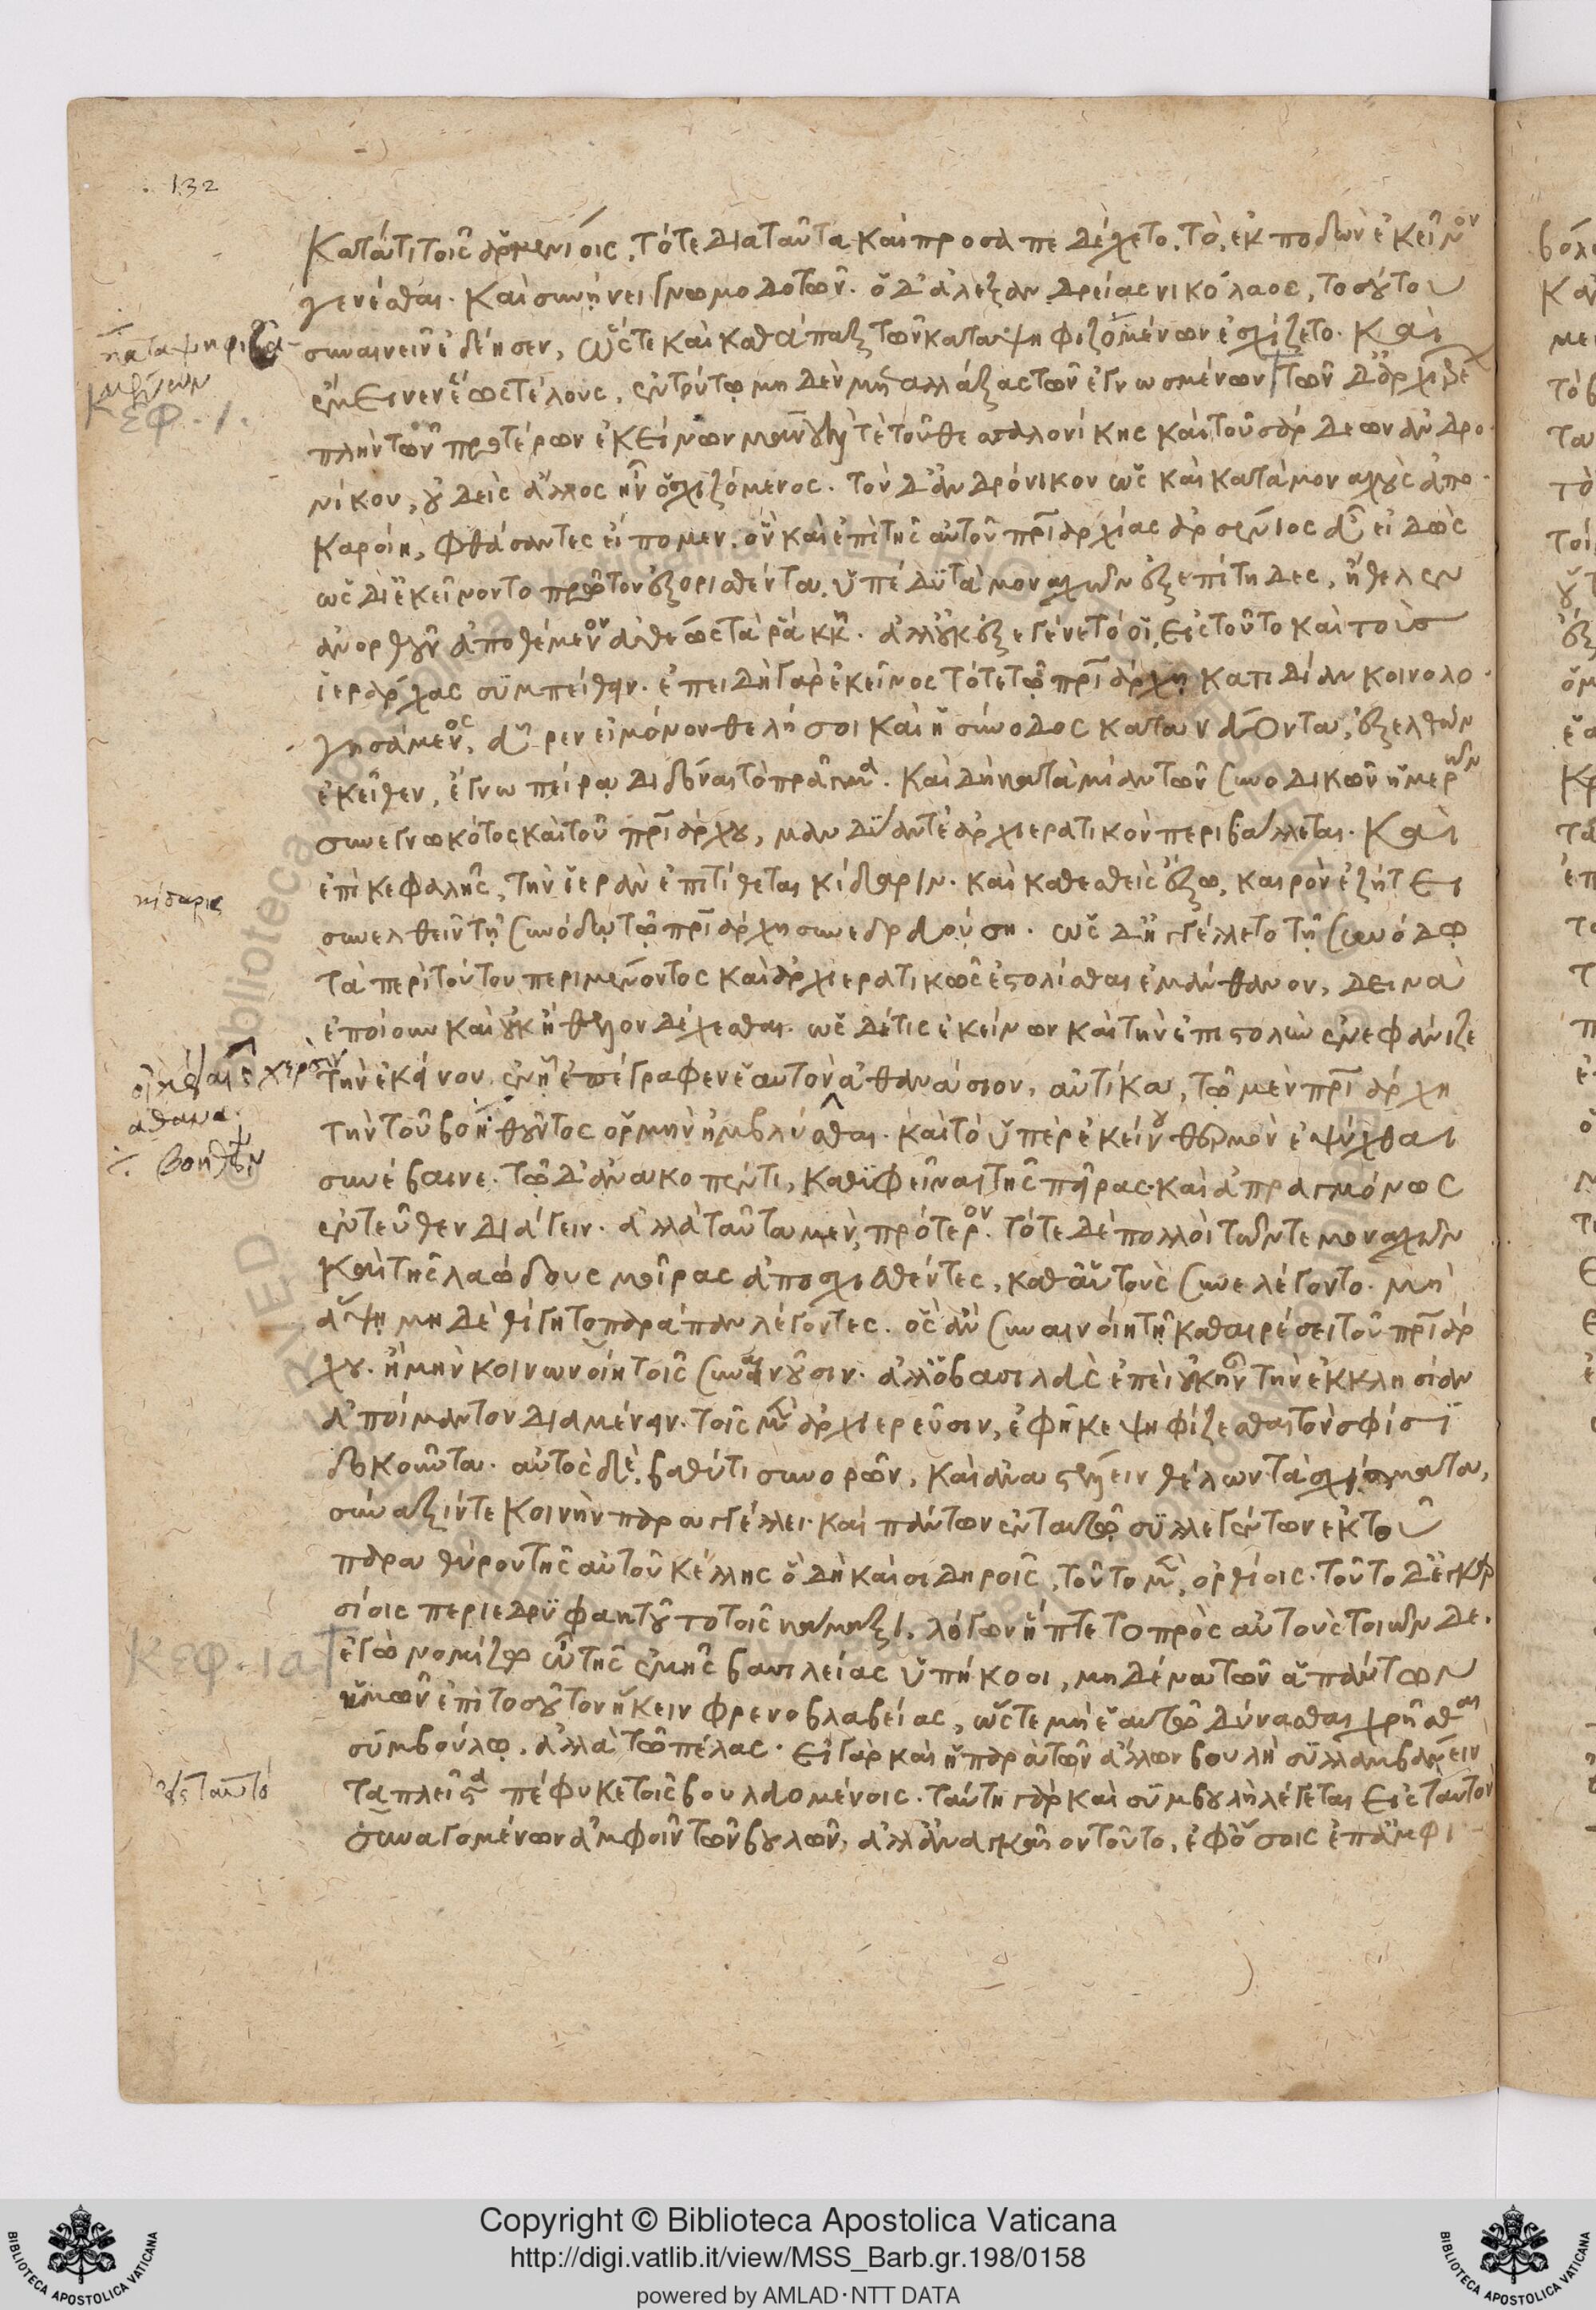 132
κατά τι τοῖς ἀρσενίοις, τότε διαταῦτα καὶ προσαπεδέχετο, τὸ, ἐκποδὼν ἐκεῖνον
γενέσθαι. καὶ συνῄνει γνωμοδοτῶν. ὁ δ' ἀλεξανδρείας νικόλαος, τοσούτου
συναινεῖν ἐδέησεν, ὥστε καὶ καθάπαξ τῶν καταψηφιζομένων ἐσχίζετο. καὶ
ἐνέμεινεν ἕως τέλους, ἐν τούτῳ μηδὲν μὴ ἀλλάξας τῶν ἐγνωσμένων τῶν δ' ἀρχιε
πλὴν τῶν προτέρων ἐκείνων μανουὴλ τὲ τοῦ θεσσαλονίκης καὶ τοῦ σάρδεων ἀνδρο-
νίκου, οὐδεὶς ἄλλος ἦν ὁ σχιζόμενος. τὸν δ' ἀνδρόνικον ὡς καὶ κατὰ μοναχοὺς ἀπο-
καροίη, φθάσαντες εἴπομεν. ὃν καὶ ἐπὶ τῆς αὐτοῦ πριαρχίας ἀρσένιος εὖ εἰδὼς
ὡς δι' ἐκεῖνον τὸ πρῶτον ἐξορισθέντα, ὑπέδυ τὰ μοναχῶν ἐξεπίτηδες, ἤθελεν
ἀνορθοῦν ἀποθέμενον ἀθέως τὰ ῥάκκη. ἀλλ' οὐκ ἐξεγένετό οἱ, εἰς τοῦτο καὶ τοὺς
ἱεράρχας συμπείθειν. ἐπειδὴ γὰρ ἐκεῖνος τότε τῷ πριάρχῃ κατιδίαν κοινολο-
γησάμενος, εὗρεν εἰ μόνον θελήσοι καὶ ἡ σύνοδος κατανεύοντα, ἐξελθὼν
ἐκεῖθεν, ἔγνω πείρᾳ διδόναι τὸ πρᾶγμα. καὶ δὴ κατὰ μίαν τῶν συνοδικῶν ἡμερῶν
συνεγνωκότος καὶ τοῦ πριάρχου, μανδύαν τὲ ἀρχιερατικὸν περιβάλλεται. καὶ
ἐπὶ κεφαλῆς, τὴν ἱερὰν ἐπιτίθεται κίδαριν. καὶ καθεσθεὶς ἔξω, καιρὸν ἐζήτει
συνελθεῖν τῇ συνόδῳ τῷ πριάρχῃ συνεδρευούσῃ. ὡς δ' ἠγγέλλετο τῇ συνόδῳ
τὰ περὶ τούτου περιμένοντος καὶ ἀρχιερατικῶς ἐστολίσθαι ἐμάνθανον, δεινὰ
ἐποίουν καὶ οὐκ ἤθελον δέχεσθαι. ὡς δέ τις ἐκείνων καὶ τὴν ἐπιστολὴν ἐνεφάνιζε
τὴν ἐκείνου, ἐν ᾗ ἐπέγραφεν ἑαυτὸν ἀθανάσιον, αὐτίκα, τῷ μὲν πριάρχῃ
τὴν τοῦ βοηθοῦντος ὁρμὴν ἠμβλύσθαι. καὶ τὸ ὑπὲρ ἐκείνου θερμὸν ἐψύχθαι
συνέβαινε. τῷ δ' ἀνακοπέντι, καθυφεῖναι τῆς πείρας καὶ ἀπραγμόνως
ἐντεῦθεν διάγειν. ἀλλὰ ταῦτα μὲν, πρότερον. τότε δὲ πολλοὶ τῶν τε μοναχῶν
καὶ τῆς λαώδους μοίρας ἀποσχισθέντες, καθ' αὑτοὺς συνελέγοντο. μὴ
ἅψῃ μηδὲ θίγῃ τοπαράπαν λέγοντες. ὃς ἂν συναινοίη τῇ καθαιρέσει τοῦ πριάρ
χου. ἢ μὴν κοινωνοίη τοῖς συναινοῦσιν. ἀλλ' ὁ βασιλεὺς ἐπεὶ οὐκ ἦν τὴν ἐκκλησίαν
ἀποίμαντον διαμένειν. τοῖς μὲν ἀρχιερεῦσιν, ἐφῆκε ψηφίζεσθαι τὸν σφίσι
δοκοῦντα. αὐτὸς δὲ, βαθύ τι συνορῶν, καὶ ἀναστέλλειν θέλων τὰ σχίσματα,
σύναξίν τε κοινὴν παραγγέλλει. καὶ πάντων ἐνταυτῷ συλλεγέντων ἐκ τοῦ
παραθύρου τῆς αὐτοῦ κέλλης ὃ δὴ καὶ σιδηροῖς, τοῦτο μὲν, ὀρθίοις. τοῦτο δ' ἐγκαρ
σίοις περιεδρυφακτοῦτο τοῖς κάμαξι, λόγων ἥπτετο πρὸς αὐτοὺς τοιῶνδε.
ἐγὼ νομίζω ὦ τῆς ἐμῆς βασιλείας ὑπήκοοι, μηδένα τῶν ἁπάντων
ἡμῶν ἐπὶ τοσοῦτον ἥκειν φρενοβλαβείας, ὥστε μὴ ἑαυτῷ δύνασθαι χρῆσθαι
συμβούλῳ, ἀλλὰ τῷ πέλας. εἰ γὰρ καὶ ἡ παρὰ τῶν ἄλλων βουλὴ συλλαμβάνειν
τὰ πλεῖστα πέφυκε τοῖς βουλευομένοις. ταύτῃ γὰρ καὶ συμβουλὴ λέγεται εἰς ταυτὸν
συναγομένων ἀμφοῖν τῶν βουλῶν, ἀλλ' ἀναγκαῖον τοῦτο, ἐφ' ὅσοις ἐπαμφι-
ΚΕΦ. ι.
κίδαρις
ἀθανα.
βοηθῶν
ΚΕΦ. ια
εἰς ταυτό
Copyright © Biblioteca Apostolica Vaticana
http://digi.vatlib.it/view/MSS_Barb.gr.198/0158
powered by AMLAD·NTT DATA
BIBLIOTECA APOSTOLICA VATICANA
BIBLIOTECA APOSTOLICA VATICANA